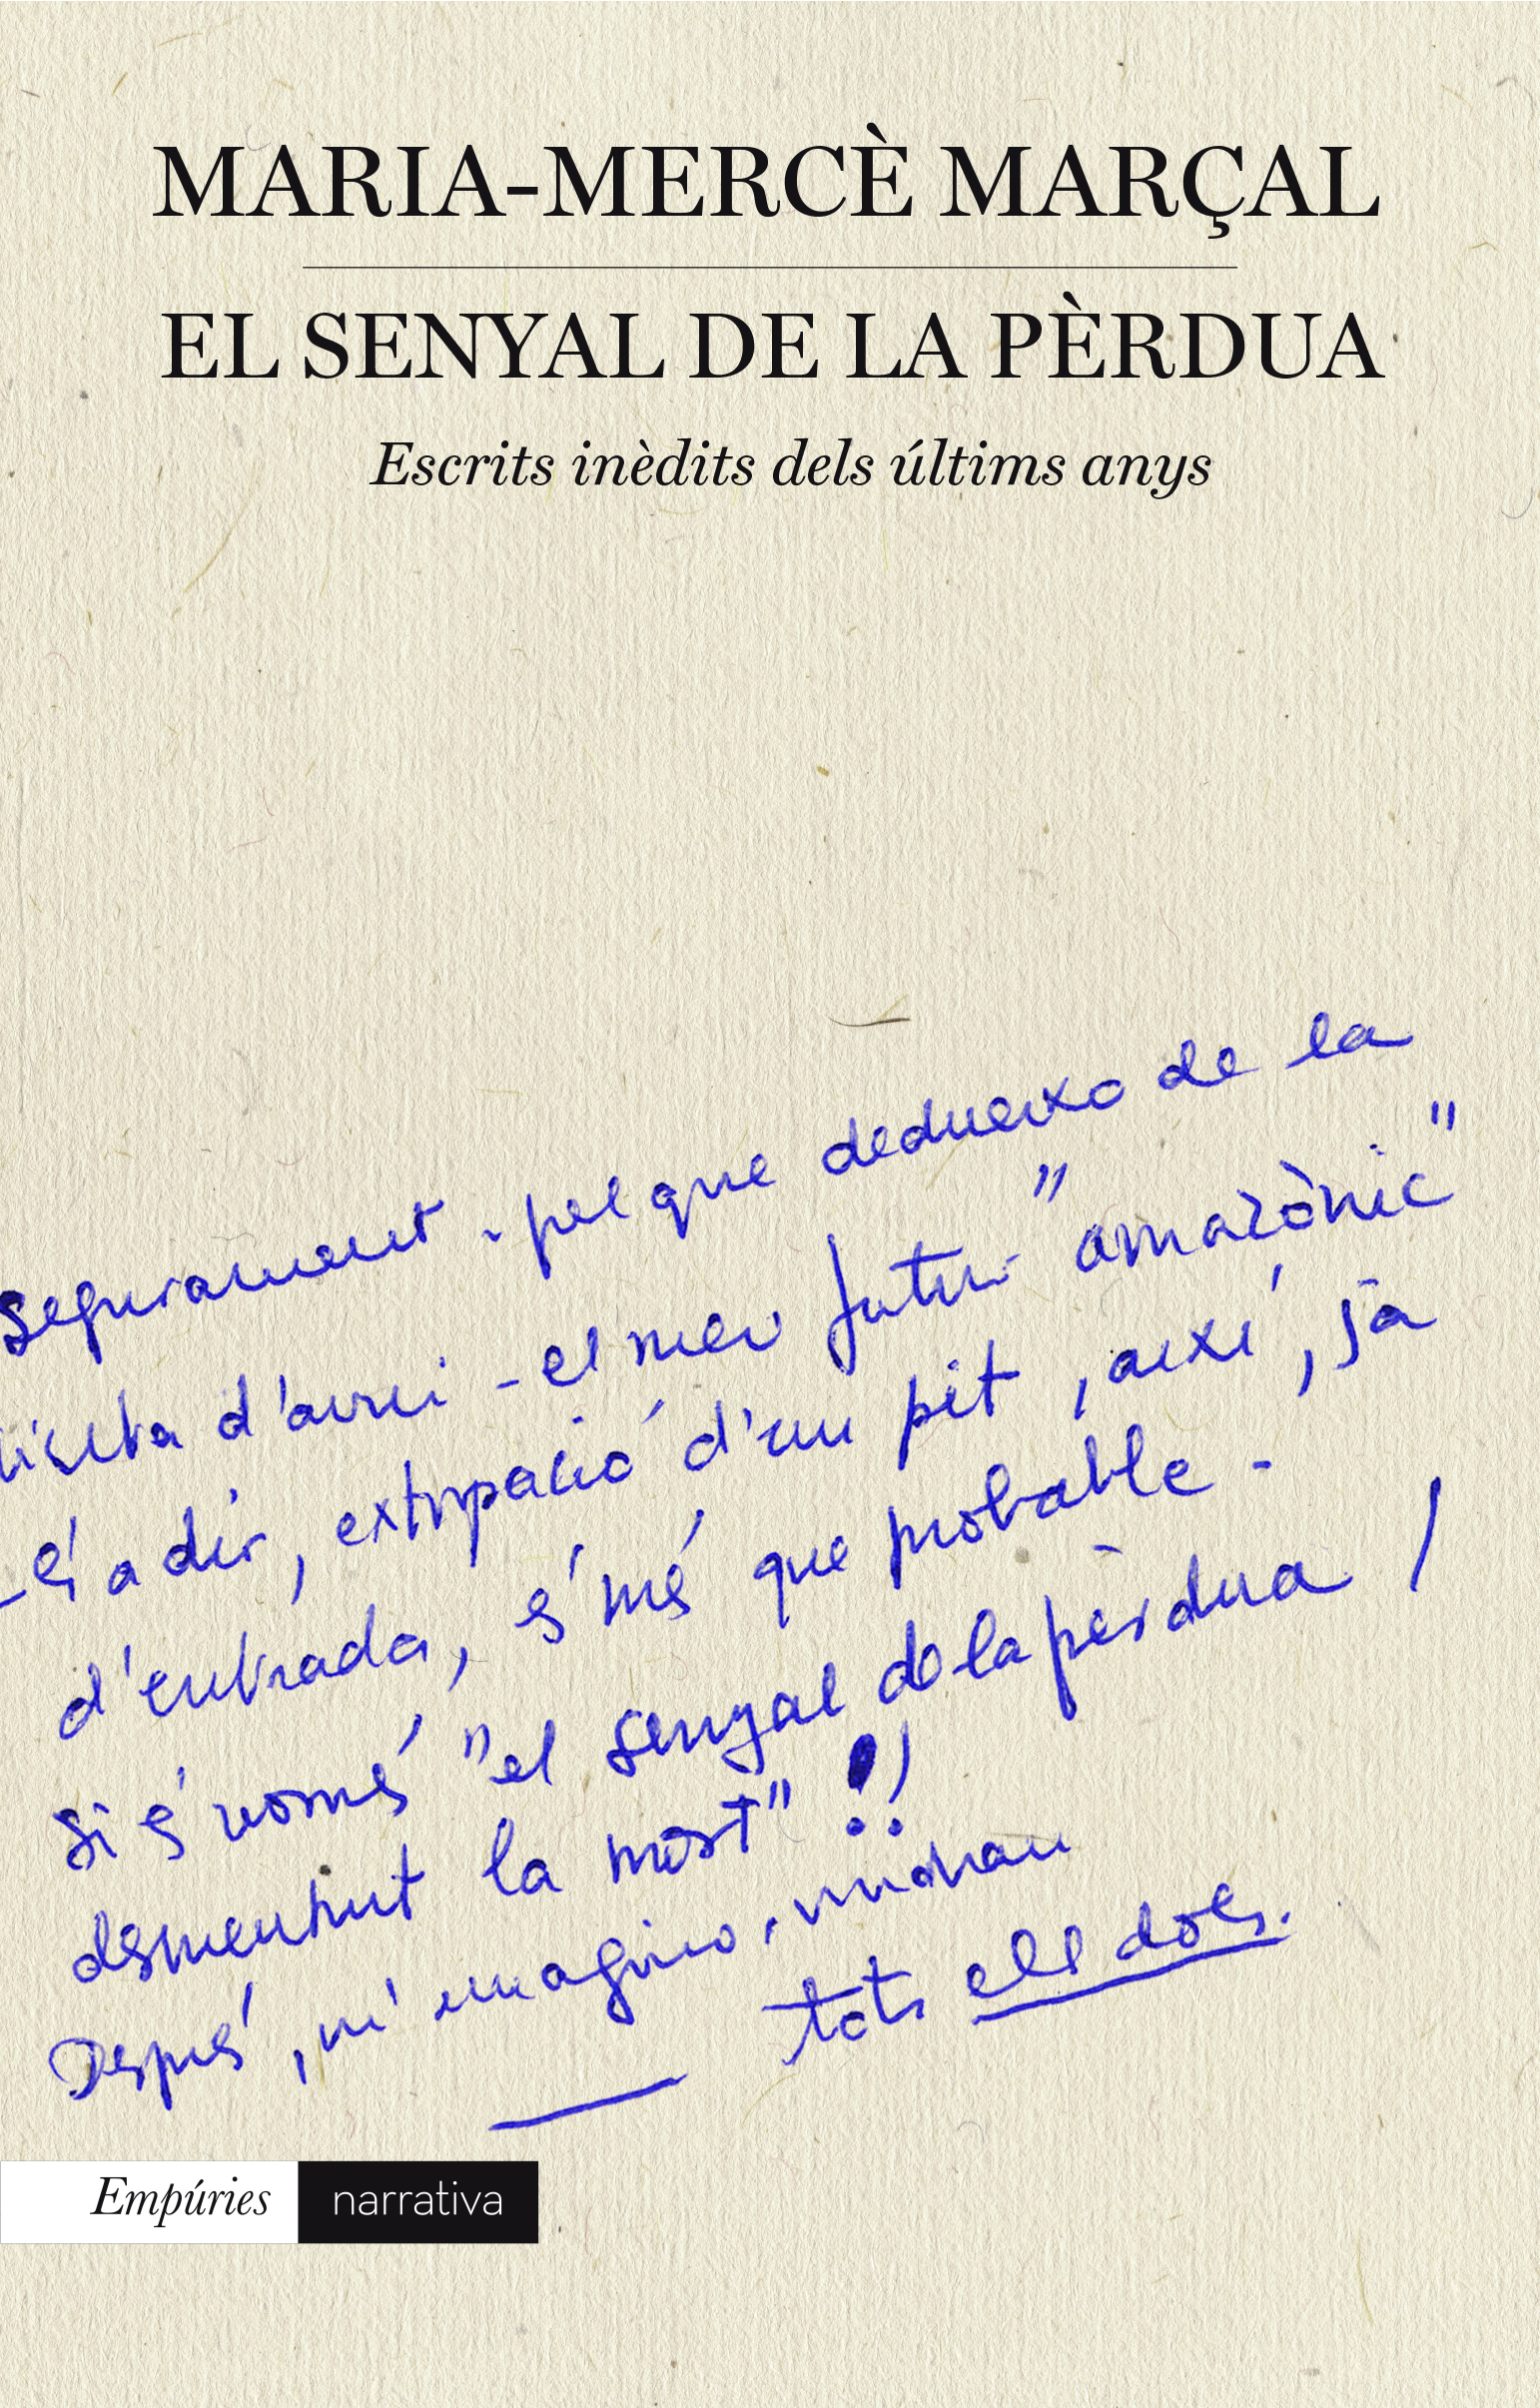 MARIA-MERCÈ MARÇAL
EL SENYAL DE LA PÈRDUA
Escrits inèdits dels últims anys
Segurament - pel que dedueixo de la
visita d'avui - el meu futur "amazònic"
- és a dir, extirpació d'un pit, així, ja
d'entrada, és més que probable -
Si és només "el senyal de la pèrdua /
desmentint la mort" !!
Després, m'imagino, miraran
tots els dos.
Empúries narrativa